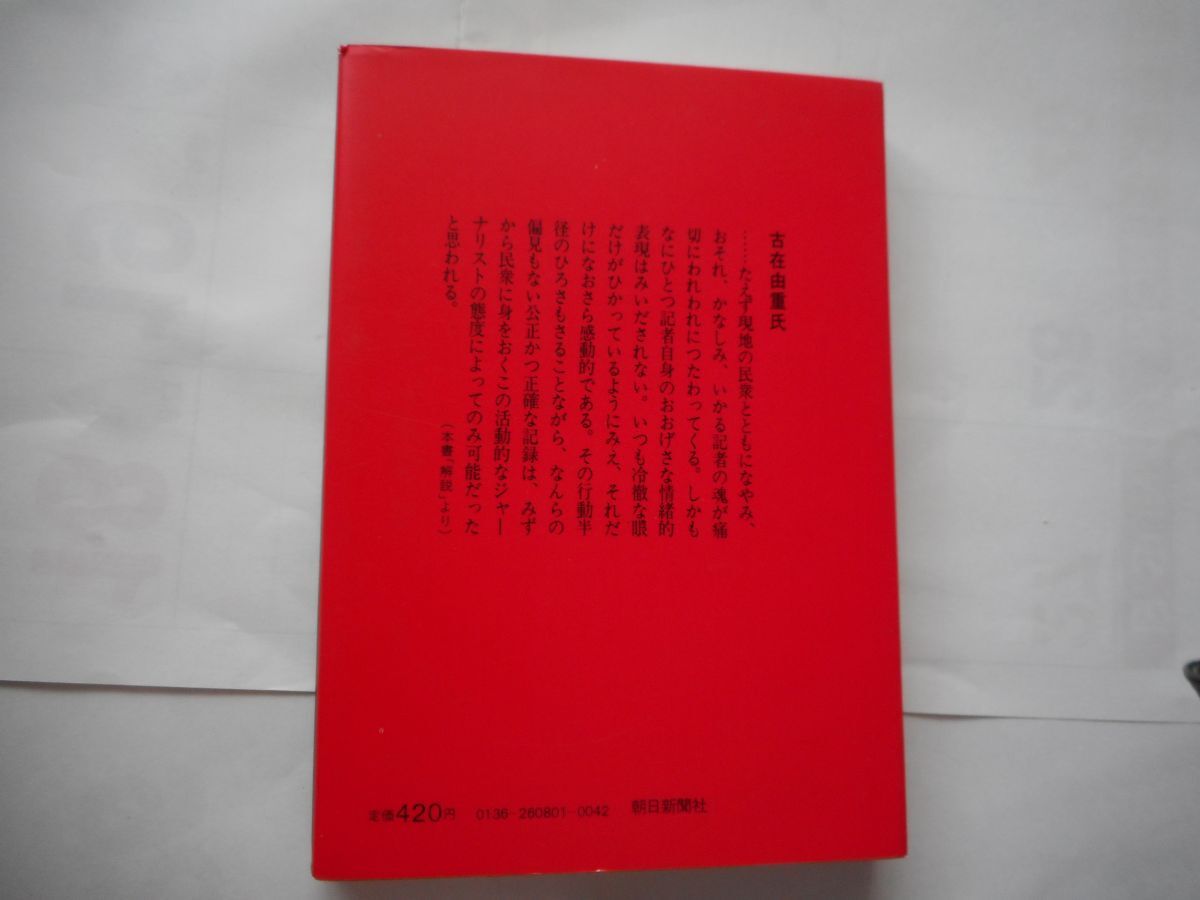 古在由重氏
……たえず現地の民衆とともになやみ、
おそれ、かなしみ、いかる記者の魂が痛
切にわれわれにつたわってくる。しかも
なにひとつ記者自身のおおげさな情緒的
表現はみいだされない。いつも冷徹な眼
だけがひかっているようにみえ、それだ
けになおさら感動的である。その行動半
径のひろさもさることながら、なんらの
偏見もない公正かつ正確な記録は、みず
から民衆に身をおくこの活動的なジャー
ナリストの態度によってのみ可能だった
と思われる。
（本書「解説」より）
定価420円 0136-260801-0042 朝日新聞社